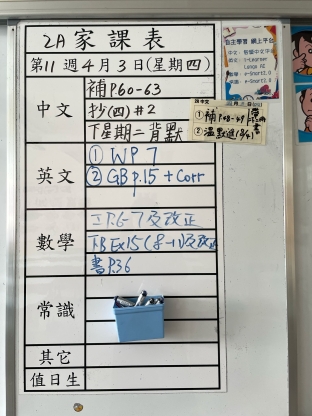 2A 家課表
第11週4月3日(星期四)
中文
補P.60-63
抄(四)#2
下星期二背默
英文
① WP 7
② GB p.15 + Corr
數學
工P.6-7及改正
下B Ex15(8-11)及改正
書P.36
常識
其它
值日生
自主學習 網上平台
① 補P.48-49